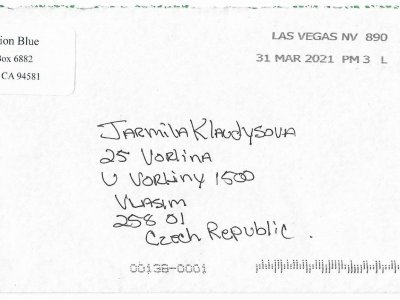 ion Blue
Box 6882
CA 94581
LAS VEGAS NV 890
31 MAR 2021 PM 3 L
Jarmila Klaudysova
25 Vorlina
U Vorliny 1500
Vlasim
258 01
Czech Republic.
00138-0001